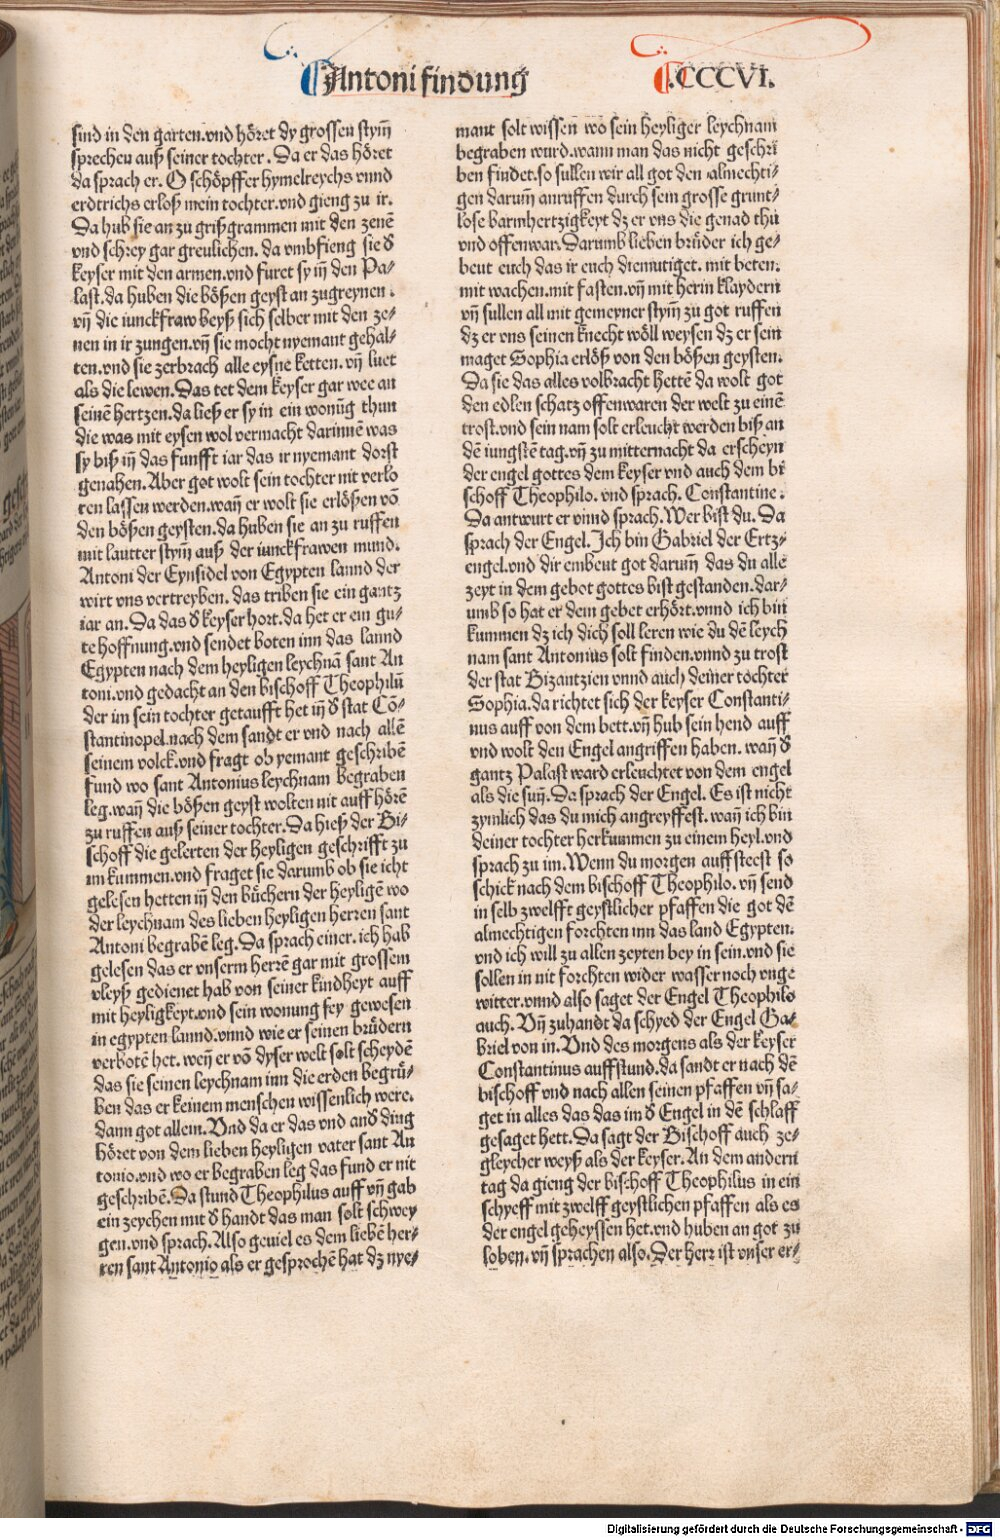 Antoni findung
.CCCVI.
sind in den garten.vnd höret dy grossen stym̄
sprechen auß seiner tochter. Da er das höret
da sprach er. O schöpffer hymelreychs vnnd
erdtrichs erlöß mein tochter.vnd gieng zu ir.
Da hub sie an zu grißgrammen mit den zenē
vnd schrey gar greulichen. da vmbfieng sie d̕
keyser mit den armen.vnd füret sy in̄ den Pa-
last.da huben die bößen geyst an zugreynen.
vn̄ die iunckfraw beyß sich selber mit den ze-
nen in ir zungen.vn̄ sie mocht nyemant gehal-
ten.vnd sie zerbrach alle eysne ketten. vn̄ luet
als die lewen.Das tet dem keyser gar wee an
seinē hertzen.da ließ er sy in ein wonūg thun
die was mit eysen wol vermacht darinnē was
sy biß in̄ das funfft iar das ir nyemant dorst
genahen. Aber got wolt sein tochter nit verlo
ren lassen werden.wan̄ er wolt sie erlößen vō
den bößen geysten.da huben sie an zu ruffen
mit lautter stym̄ auß der iunckfrawen mund.
Antoni der Eynsidel von Egypten lannd der
wirt vns vertreyben. das triben sie ein gantz
iar an. Da das d̕ keyser hort.da het er ein gu-
te hoffnung.vnd sendet boten inn das lannd
Egypten nach dem heyligen leychnā sant An
toni.vnd gedacht an den bischoff Theophilū
der im sein tochter getaufft het in̄ d̕ stat Cō-
stantinopel.nach dem sandt er vnd nach allē
seinem volck.vnd fragt ob yemant geschribē
fund wo sant Antonius leychnam begraben
leg.wan̄ die bößen geyst wolten nit auff hörē
zu ruffen auß seiner tochter.Da hieß der Bi-
schoff die gelerten der heyligen geschrifft zu
im kummen.vnd fraget sie darumb ob sie icht
gelesen hetten in̄ den büchern der heyligē wo
der leychnam des lieben heyligen herren sant
Antoni begrabē leg.Da sprach einer. ich hab
gelesen das er vnserm herrē gar mit grossem
vleyß gedienet hab von seiner kindheyt auff
mit heyligkeyt.vnd sein wonung sey gewesen
in egypten lannd.vnnd wie er seinen brüdern
verbotē het. wen̄ er vō dyser welt solt scheydē
das sie seinen leychnam inn die erden begrü-
ben das er keinem menschen wissenlich were.
dann got allein. Vnd da er das vnd and̕ ding
höret von dem lieben heyligen vater sant An
tonio.vnd wo er begraben leg das fund er nit
geschribē.Da stund Theophilus auff vn̄ gab
ein zeychen mit d̕ handt das man solt schwey
gen.vnd sprach.Also geuiel es dem liebē her-
ren sant Antonio als er gesprochē hat dz nye-
mant solt wissen wo sein heyliger leychnam
begraben wurd.wann man das nicht geschri
ben findet.so sullen wir all got den almechti-
gen darum̄ anruffen durch sein grosse grunt-
lose barmhertzigkeyt dz er vns die genad thü
vnd offenwar.Darumb lieben brüder ich ge-
beut euch das ir euch diemutiget. mit beten.
mit wachen.mit fasten.vn̄ mit herin klaydern
vn̄ sullen all mit gemeyner stym̄ zu got ruffen
dz er vns seinen knecht wöll weysen dz er sein
maget Sophia erlöß von den bößen geysten.
Da sie das alles volbracht hettē da wolt got
den edlen schatz offenwaren der welt zu einē
trost.vnd sein nam solt erleucht werden biß an
dē iungstē tag.vn̄ zu mitternacht da erscheyn
der engel gottes dem keyser vnd auch dem bi
schoff Theophilo. vnd sprach. Constantine.
Da antwurt er vnnd sprach.Wer bist du. Da
sprach der Engel. Ich bin Gabriel der Ertz-
engel.vnd dir embeut got darum̄ das du alle
zeyt in dem gebot gottes bist gestanden.dar-
umb so hat er dem gebet erhört.vnnd ich bin
kummen dz ich dich soll leren wie du dē leych
nam sant Antonius solt finden.vnnd zu trost
der stat Bizantzien vnnd auch deiner tochter
Sophia.da richtet sich der keyser Constanti-
nus auff von dem bett.vn̄ hub sein hend auff
vnd wolt den Engel angriffen haben. wan̄ d̕
gantz Palast ward erleuchtet von dem engel
als die sun̄.Da sprach der Engel. Es ist nicht
zymlich das du mich angreyffest.wan̄ ich bin
deiner tochter herkummen zu einem heyl.vnd
sprach zu im.Wenn du morgen auff steest so
schick nach dem bischoff Theophilo. vn̄ send
in selb zwelfft geystlicher pfaffen die got dē
almechtigen forchten inn das land Egypten.
vnd ich will zu allen zeyten bey in sein.vnd sie
sollen in nit forchten wider wasser noch vnge
witter.vnnd also saget der Engel Theophilo
auch. Vn̄ zuhandt da schyed der Engel Ga-
briel von in.Vnd des morgens als der keyser
Constantinus auffstund.da sandt er nach dē
bischoff vnd nach allen seinen pfaffen vn̄ sa-
get in alles das das im d̕ Engel in dē schlaff
gesaget hett. Da sagt der Bischoff auch ze-
gleycher weyß als der keyser. An dem andern
tag da gieng der bischoff Theophilus in ein
schyeff mit zwelff geystlichen pfaffen als es
der engel geheyssen het.vnd huben an got zu
loben. vn̄ sprachen also. Der herr ist vnser er-
Digitalisierung gefördert durch die Deutsche Forschungsgemeinschaft - DFG